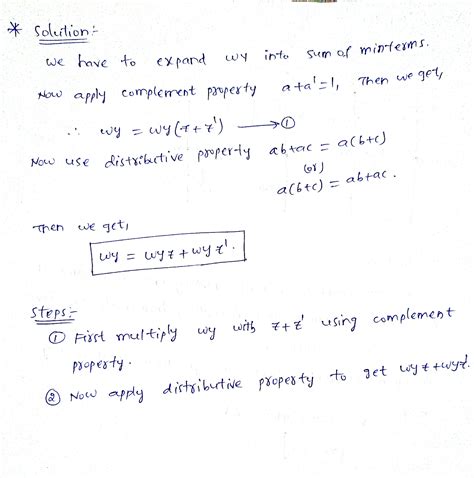 * Solution:-
we have to expand wy into sum of minterms.
Now apply complement property a+a'=1, Then we get,
∴ wy = wy(z+z') → ①
Now use distributive property ab+ac = a(b+c)
(or)
a(b+c) = ab+ac.
Then we get,
wy = wyz + wyz'.
Steps:-
① First multiply wy with z+z' using complement
property.
② Now apply distributive property to get wyz+wyz'.